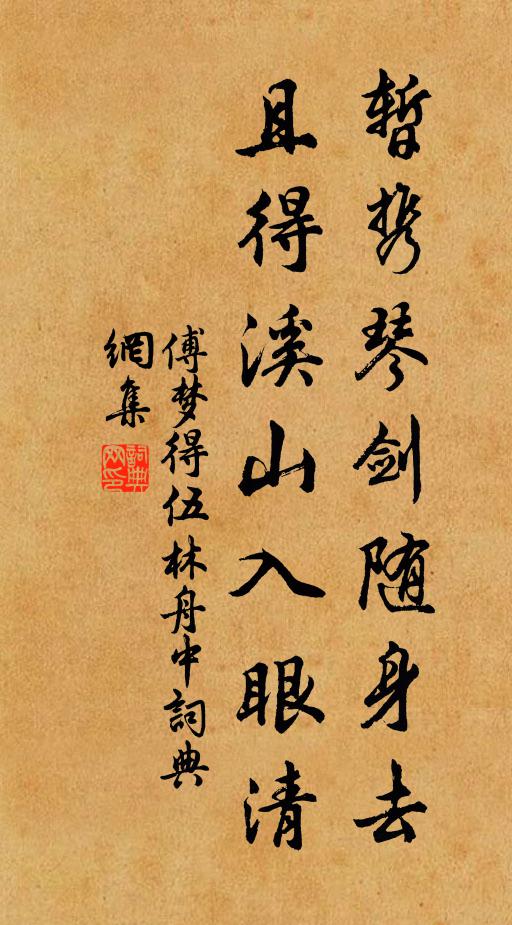 暫携琴劍随身去
且得溪山入眼清
傅梦得伍林舟中詞典
網集
詞典網印